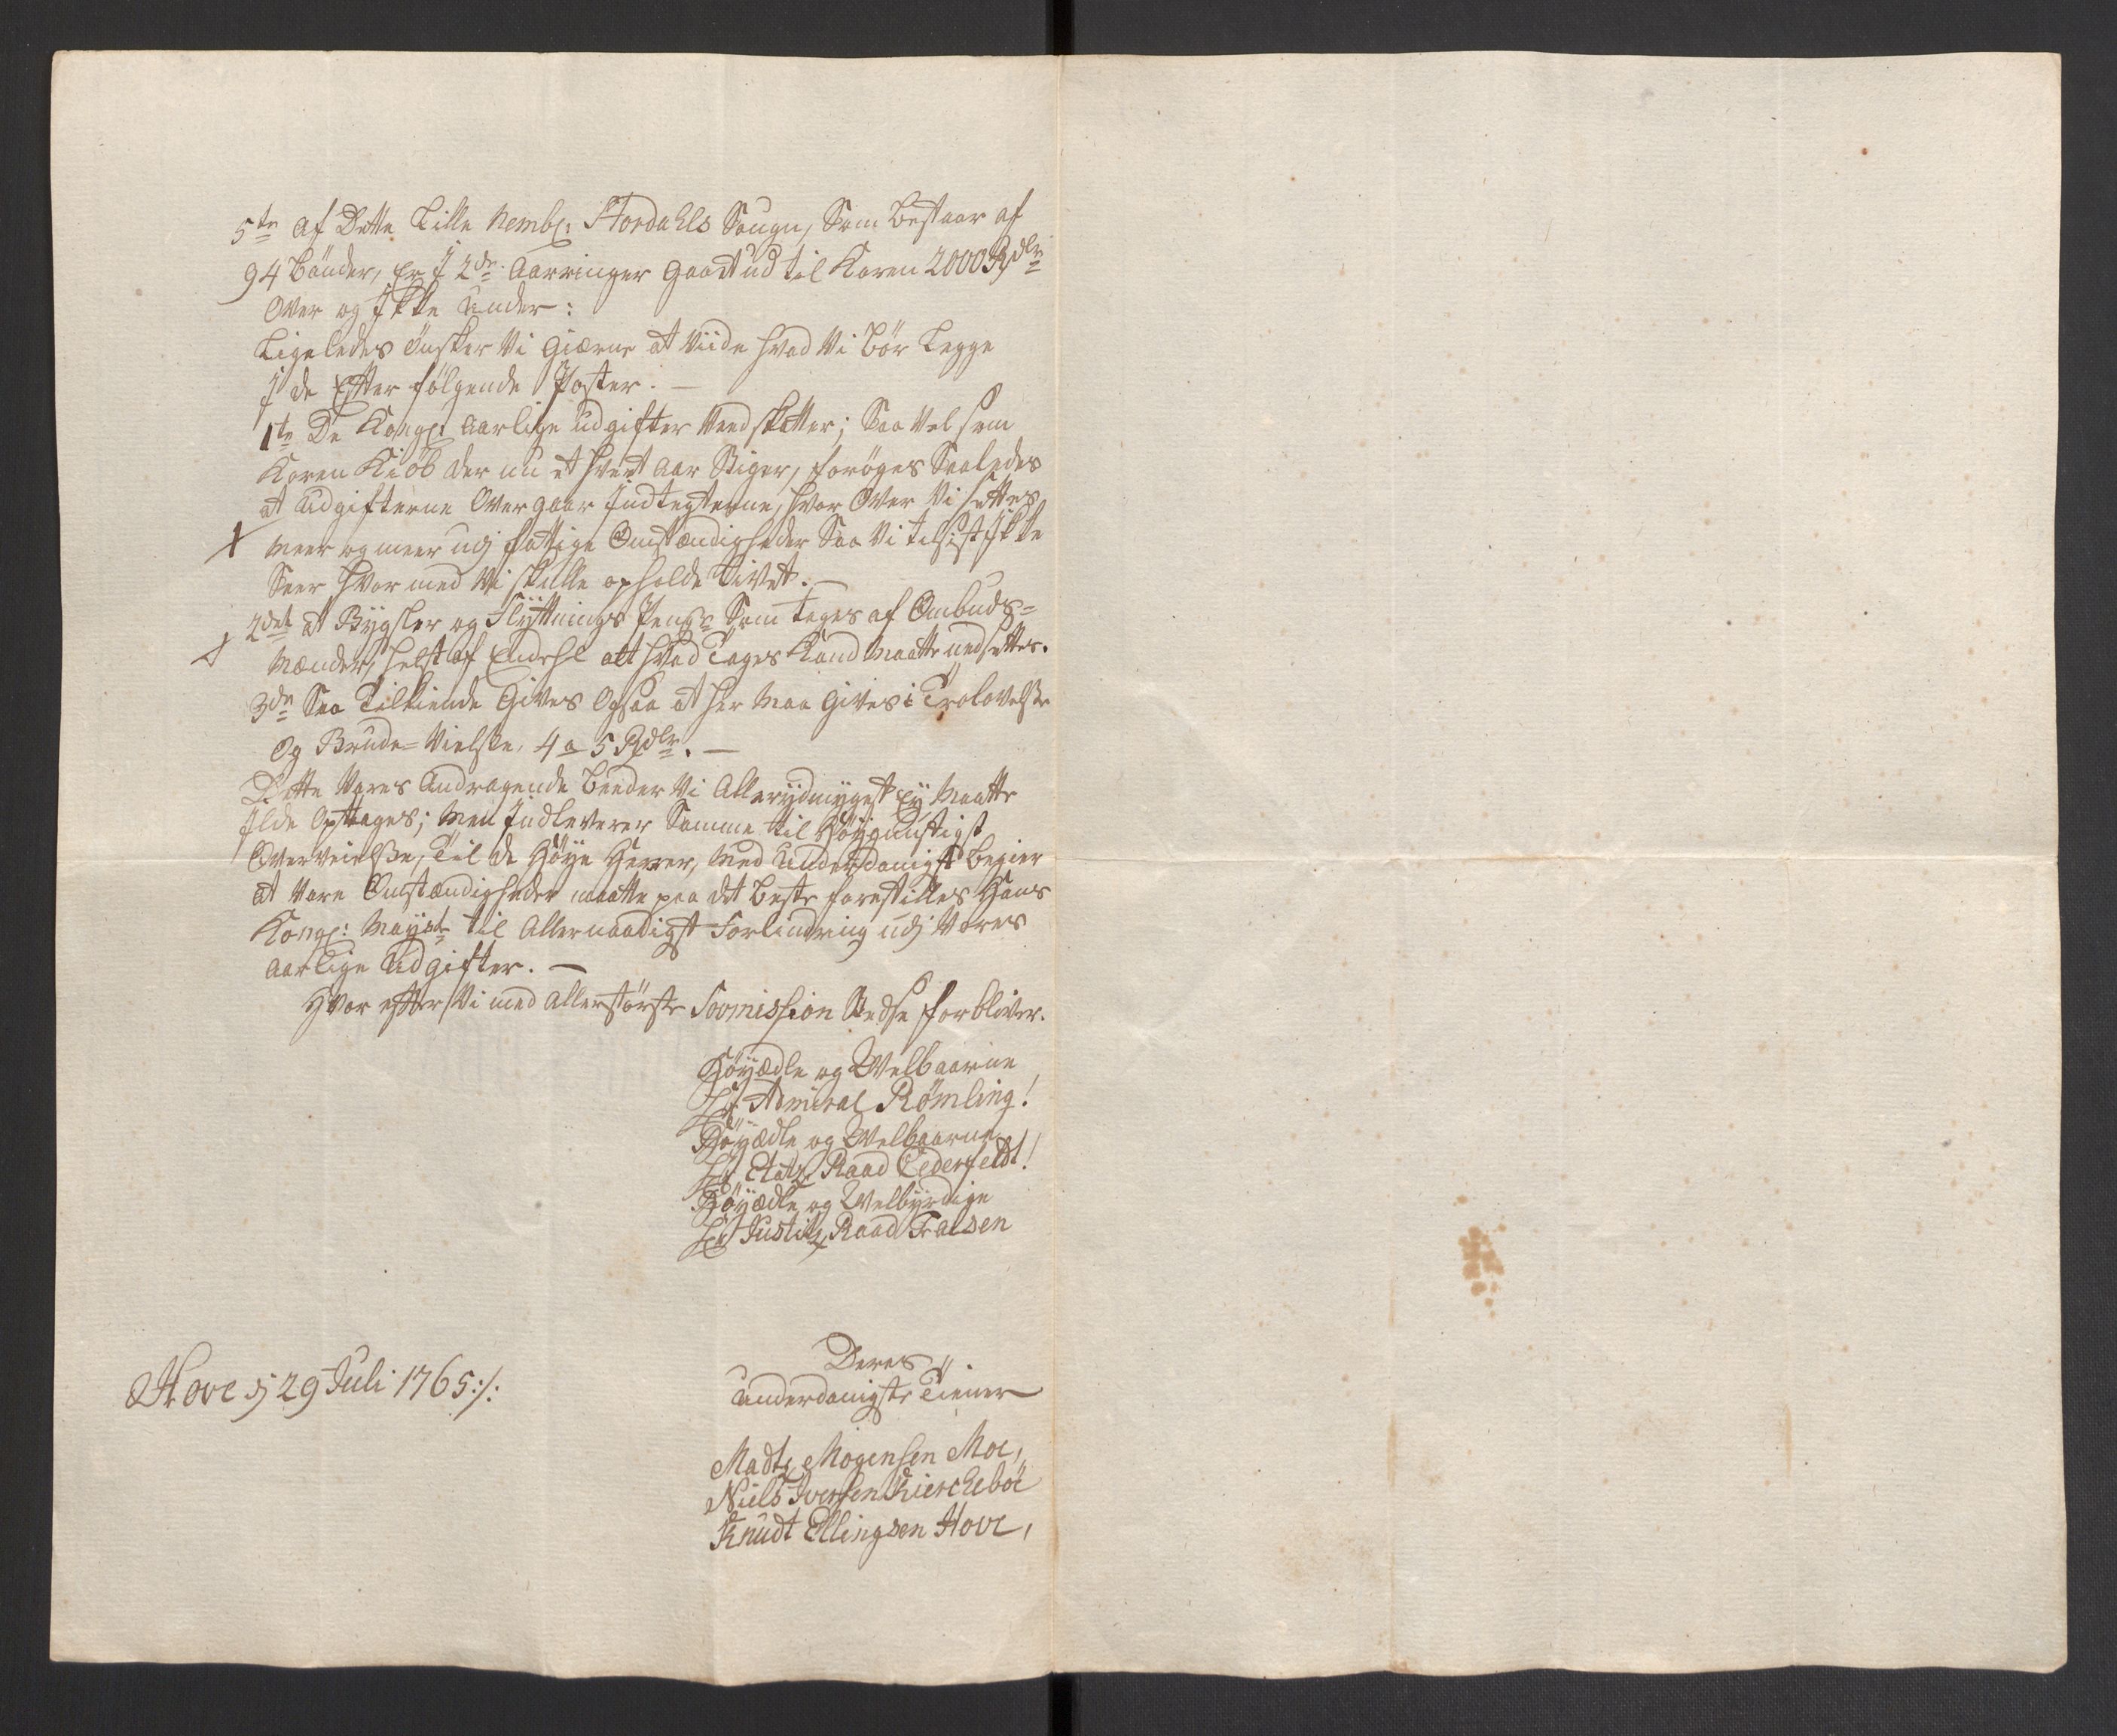 5te Af Dette Lille Nembl: Stordahls Sougn, Som bestaar af
94 bönder, Er I 2de Aarringer Gaaet ud til Koren 2000 Rdlr
Over og Ikke under:
Ligeledes önsker Vi Giærne at Viide hvad Vi bör Legge
I de Efter følgende Poster. —
1te De Kongl: Aarlige Udgifter Ved skatter; Saa Vel som
Koren Kiöb der nu et hvert Aar Stiger, forøges Saaledes
at Udgifterne Overgaar Indtegterne, hvor Over Vi settes
meer og meer udj fattige Omstændigheder Saa Vi tilsist Ikke
Seer hvor med Vi skulle opholde Livet. —
2det at Bygsler og Flyttnings Penge Som tages af Ombuds=
mænder, helst af Endehl alt hvad Tages Kand Maatte nedsettes.
3de Saa Tilkiende Gives Ogsaa at her Maa Gives i Trolovelse
Og Brude=Vielse, 4 a 5 Rdlr. —
Dette Vores Andragende beeder Vi Allerydmygst Ey Maatte
Ilde Optages; Men Indleverer Samme til Høygunstigst
Overveielse, Til de Høye Herrer, Med Underdanigst begier
at Vore Omstændigheder maatte paa det beste forestilles Hans
Kongl: Mayst: til Allernaadigst Forlindring udj Vores
Aarlige Udgifter. —
Hvor efter Vi med Allerstørste Sovmission Stedse forbliver.
Høyædle og Welbaarne
Hr Admiral Rømling!
Høyædle og Welbaarne
Hr Etatz Raad Cederfeldt!
Høyædle og Welbyrdige
Hr Justitz Raad Fralsen
Hove dj 29 Juli 1765:/:
Deres
Underdanigste Tiener
Madtz Mogensen Moe,
Niels Iversen Kierchebøe
Knudt Ellingsen Hove,